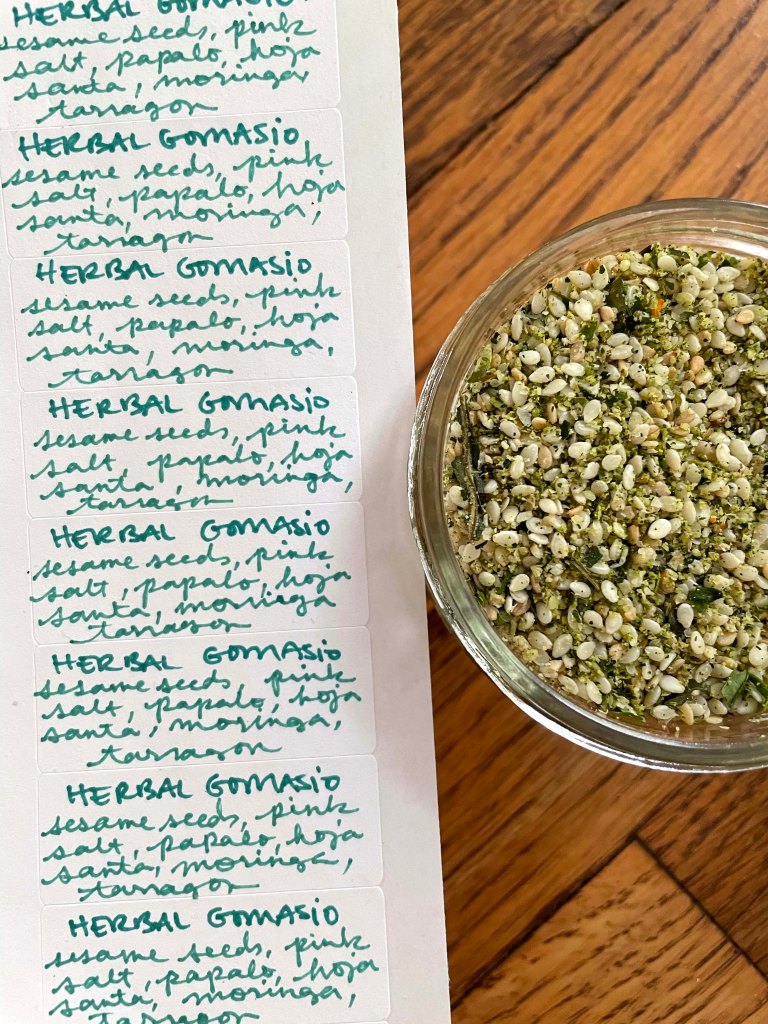 HERBAL GOMASIO
sesame seeds, pink
salt, papalo, hoja
santa, moringa,
tarragon
HERBAL GOMASIO
sesame seeds, pink
salt, papalo, hoja
santa, moringa,
tarragon
HERBAL GOMASIO
sesame seeds, pink
salt, papalo, hoja
santa, moringa,
tarragon
HERBAL GOMASIO
sesame seeds, pink
salt papalo, hoja
santa, moringa,
tarragon
HERBAL GOMASIO
sesame seeds, pink
salt, papalo, hoja
santa, moringa
tarragon
HERBAL GOMASIO
sesame seeds pink
salt, papalo, hoja
santa, moringa,
tarragon
HERBAL GOMASIO
sesame seeds, pink
salt, papalo, hoja
santa, moringa,
tarragon
HERBAL GOMASIO
sesame seeds, pink
salt, papalo, hoja
santa, moringa,
tarragon